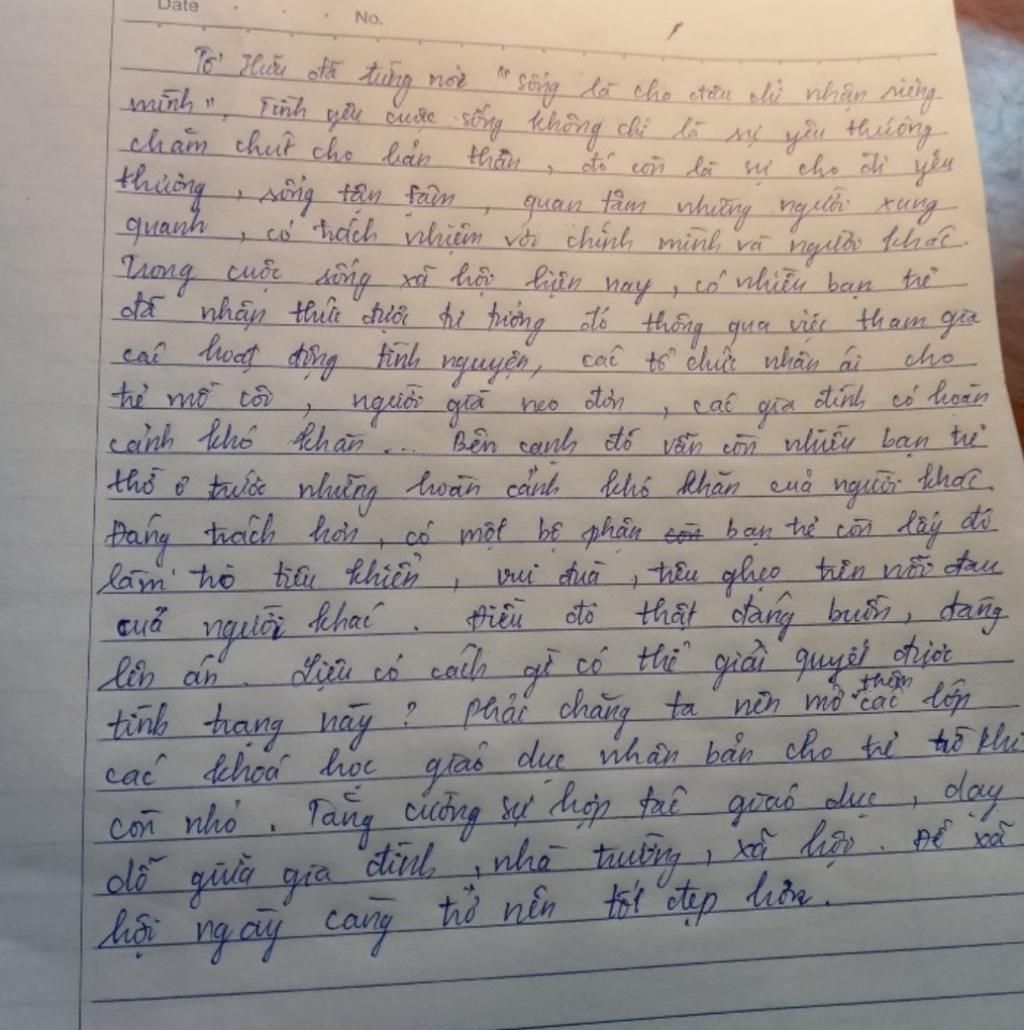 Date No.
Tố Hữu đã từng nói "sống là cho đâu chỉ nhận riêng
mình". Tình yêu cuộc sống không chỉ là sự yêu thương
chăm chút cho bản thân, đó còn là sự cho đi yêu
thương, sống tận tâm, quan tâm những người xung
quanh, có trách nhiệm với chính mình và người khác.
Trong cuộc sống xã hội hiện nay, có nhiều bạn trẻ
đã nhận thức được tư tưởng đó thông qua việc tham gia
các hoạt động tình nguyện, các tổ chức nhân ái cho
trẻ mồ côi, người già neo đơn, các gia đình có hoàn
cảnh khó khăn... Bên cạnh đó vẫn còn nhiều bạn trẻ
thờ ơ trước những hoàn cảnh khó khăn của người khác
Đáng trách hơn, có một bộ phận bạn trẻ còn lấy đó
làm trò tiêu khiển, vui đùa, trêu ghẹo trên nỗi đau
của người khác. Điều đó thật đáng buồn, đáng
lên án. Liệu có cách gì có thể giải quyết được
tình trạng này? Phải chăng ta nên mở thêm các lớp
các khoá học giáo dục nhân bản cho trẻ từ khi
còn nhỏ. Tăng cường sự hợp tác giáo dục, dạy
dỗ giữa gia đình, nhà trường, xã hội. Để xã
hội ngày càng trở nên tốt đẹp hơn.